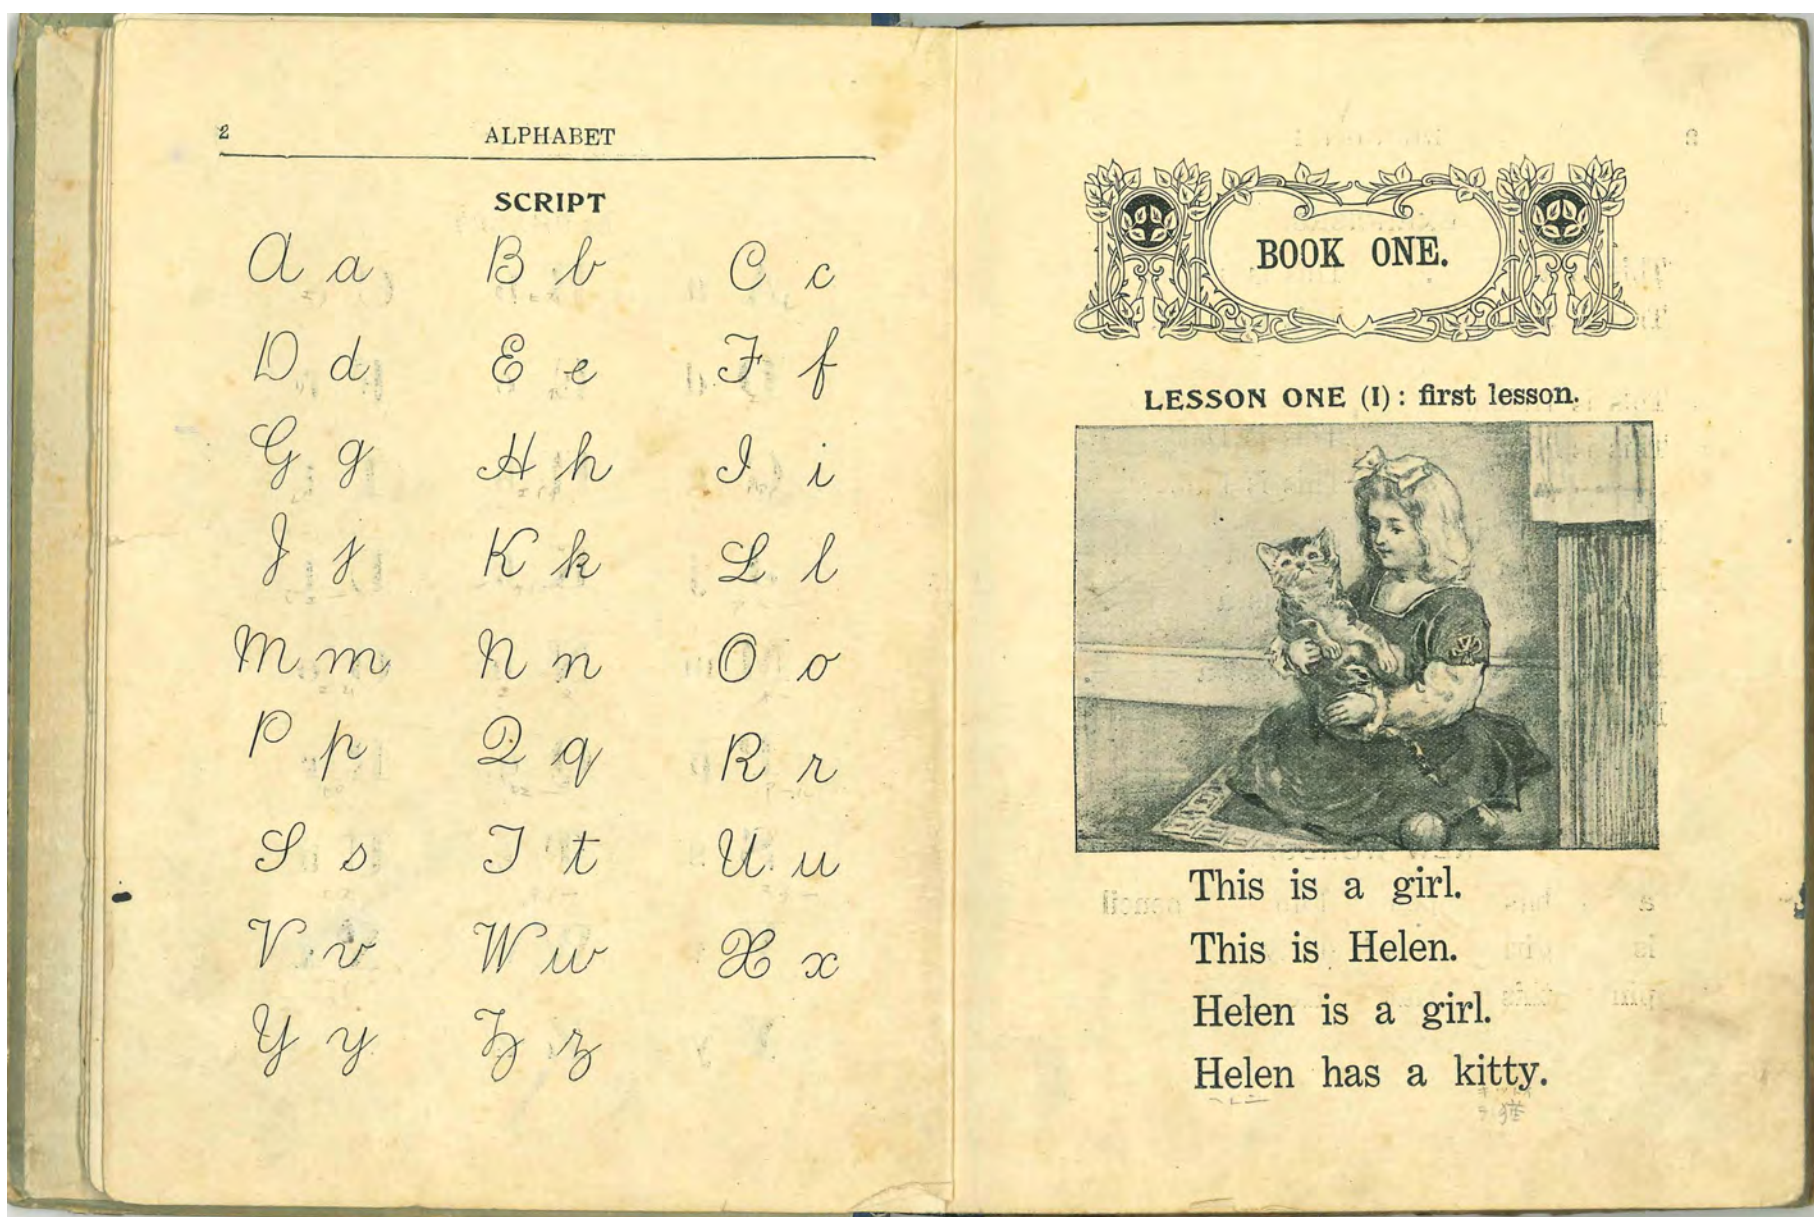 2 ALPHABET
SCRIPT
A a B b C c
D d E e F f
G g H h I i
J j K k L l
M m N n O o
P p Q q R r
S s T t U u
V v W w X x
Y y Z z
BOOK ONE.
LESSON ONE (I): first lesson.
This is a girl.
This is Helen.
Helen is a girl.
Helen has a kitty.
猫